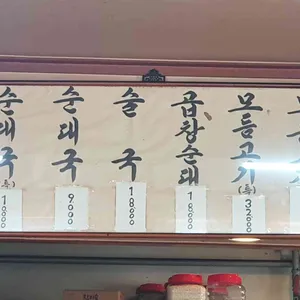 순대국(특)
순대국
9000
술국
18000
곱창순대
18000
모듬고기(특)